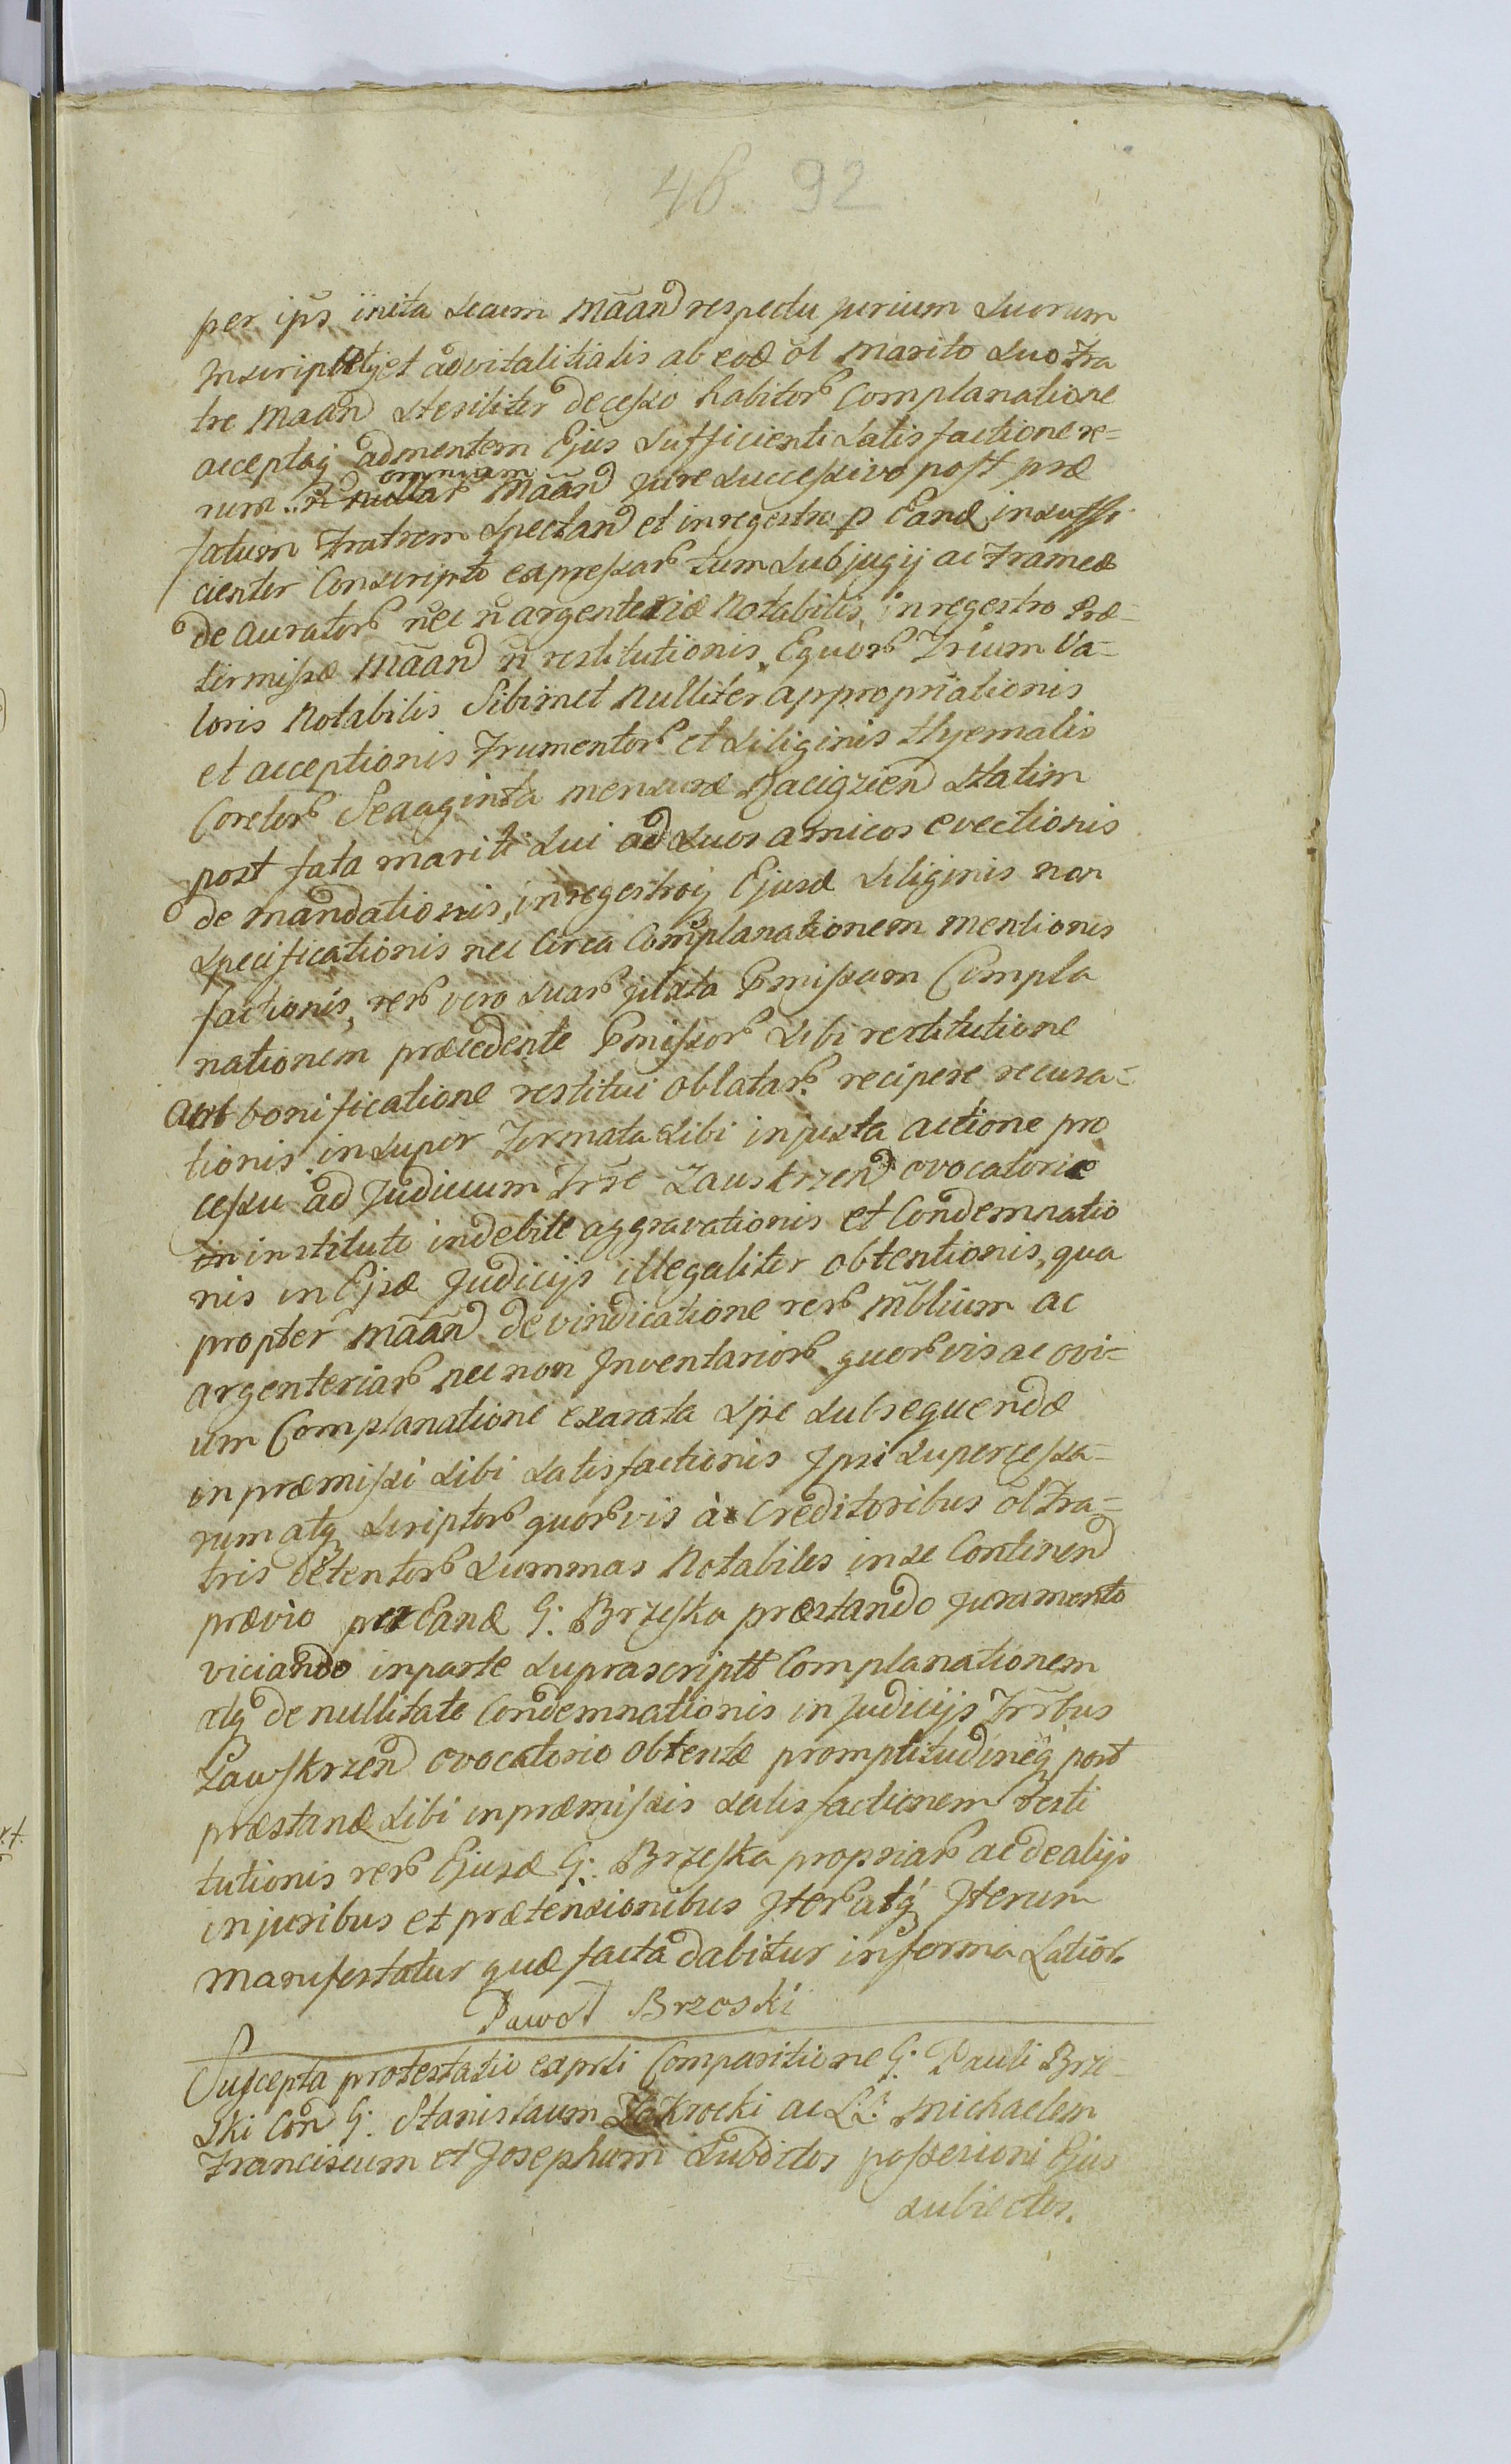 46 92
per ips̃ inita secum mãand respectu jurium suorum
Inscriptqȝ et advitalitialis ab eod ol marito suo Fra
tre mãand steriliter decesso habitorꝝ Complanatione
acceptaqȝ ad mentem Ejus sufficienti satisfactione re=
omnium
rum .. mãand jure successivo post præ
fatum Fratrem spectand et in regestro p Eand insuffi
cienter Conscripto expressarꝝ tum subjugij ac Frameæ
de auratorꝝ nec n̄ argenteriæ Notabilis, in regestro Præ=
termissæ mãand n̄ restitutionis, Equorꝝ Trium Va=
loris Notabilis Sibimet nulliter appropriationis
et acceptionis Frumentorꝝ et siliginis Hyemalis
Coretorꝝ Sexaginta mensuræ Raciązien statim
post fata mariti sui ad suos amicos evectionis
de mandationis, in regestroqȝ Ejusd siliginis non
specificationis nec Circa Complanationem mentionis
factionis, rerꝝ vero suarꝝ juxta Pmissam Compla
nationem præcedente Pmissorꝝ sibi restitutione
aut bonificatione restitui oblatarꝝ recipere recusa=
tionis insuper Formata sibi injusta actione pro
cessu ad Judicium Trr̃e Zauskrzen ovocatoriæ
in instituti indebite aggravationis et Condemnatio
nis in Ejsd Judicijs illegaliter obtentionis, qua
propter mãand de vindicatione rerꝝ m̃blium ac
argenteriarꝝ nec non Inventariorꝝ quorꝝvis ac ovi=
um Complanatione exarata spe subsequendæ
in præmissi sibi satisfactionis Ipsi supercessa=
rum atqȝ scriptorꝝ quorꝝvis à Creditoribus ol Fra=
tris detentorꝝ summas Notabiles in se Continen
prævio per Eand G: Brzeska præstando juramento
viciando in parte suprascriptt Complanationem
atqȝ de nullitate Condemnationis in Judicijs Trr̃bus
Zawskrzen ovocatorio obtentæ promptitudineqȝ post
præstand sibi in præmissis satisfactionem resti
tutionis rerꝝ Ejusd G: Brzeska propriarꝝ ac de alijs
injuribus et prætensionibus Iterꝝ atqȝ Iterum
manifestatur quæ facta dabitur in forma Latiorꝝ
Paweł Brzoski
Suscepta protestatio ex prti Comparitione G: Pauli Brze=
ski Con G: Stanislaum Zakrocki ac LL: Michaelem
Franciscum et Josephum Subditos possessioni Ejus
subiectos.